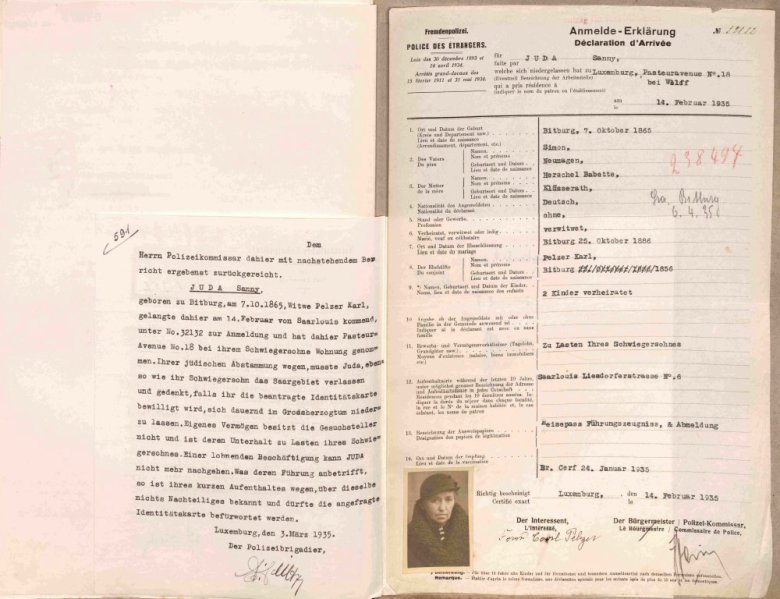 591
Dem
Herrn Polizeikommissar dahier mit nachstehendem Be
richt ergebenst zurückgereicht.
JUDA Sanny,
geboren zu Bitburg, am 7.10.1865, Witwe Pelzer Karl,
gelangte dahier am 14.Februar von Saarlouis kommend,
unter No.32132 zur Anmeldung und hat dahier Pasteur
Avenue No.18 bei ihrem Schwiegersohne Wohnung genom
men.Ihrer jüdischen Abstammung wegen, musste Juda, eben
so wie ihr Schwiegersohn das Saargebiet verlassen
und gedenkt, falls ihr die beantragte Identitätskarte
bewilligt wird, sich dauernd in Grossherzogtum nieder
zu lassen. Eigenes Vermögen besitzt die Gesuchsteller
nicht und ist deren Unterhalt zu Lasten ihres Schwie
gersohnes. Einer lohnenden Beschäftigung kann JUDA
nicht mehr nachgehen. Was deren Führung anbetrifft,
so ist ihres kurzen Aufenthaltes wegen, über dieselbe
nichts Nachteiliges bekannt und dürfte die angefragte
Identitätskarte befürwortet werden.
Luxemburg, den 3.März 1935.
Der Polizeibrigadier,
Fremdenpolizei.
POLICE DES ETRANGERS.
Lois des 30 décembre 1893 et
18 avril 1934.
Arrêtés grand-ducaux des
15 février 1912 et 31 mai 1934.
Anmelde-Erklärung
Déclaration d'Arrivée
№
für JUDA Sanny,
faite par
welche sich niedergelassen hat zu Luxemburg, Pasteuravenue N°.18
(Eventuell Bezeichnung der Arbeitsstelle) bei Wolff
qui a pris résidence à
(indiquer le nom du patron ou l'établissement)
am 14. Februar 1935
le
1. Ort und Datum der Geburt Bitburg, 7. Oktober 1865
(Kreis und Departement usw.)
Lieu et date de naissance
(Arrondissement, département, etc.)
2. Des Vaters Namen. Simon,
Du père Nom et prénoms
Geburtsort und Datum Neumagen,
Lieu et date de naissance
3. Der Mutter Namen. Herschel Babette,
de la mère Nom et prénoms
Geburtsort und Datum Klüsserath,
Lieu et date de naissance
238497
4. Nationalität des Angemeldeten Deutsch,
Nationalité du déclarant
Bitburg
6.4.35
5. Stand oder Gewerbe. ohne,
Profession
6. Verheiratet, verwitwet oder ledig verwitwet,
Marié, veuf ou célibataire
7. Ort und Datum der Eheschliessung Bitburg 25. Oktober 1886
Lieu et date du mariage
8. Der Ehehälfte Namen. Pelzer Karl,
Du conjoint Nom et prénoms
Geburtsort und Datum Bitburg 1856
Lieu et date de naissance
9. Namen, Geburtsort und Datum der Kinder. 2 Kinder verheiratet
Noms, lieu et date de naissance des enfants
10. Angabe ob der Angemeldete mit oder ohne
Familie in der Gemeinde anwesend ist
Indiquer si le déclarant est avec ou sans
famille
11. Erwerbs- und Vermögensverhältnisse (Tagelohn, Zu Lasten Ihres Schwiegersohnes
Grundgüter usw.)
Moyens d'existence (salaire, biens immobiliers
etc.)
12. Aufenthaltsorte während der letzten 10 Jahre, Saarlouis Liesdorferstrasse N°.6
unter möglichst genauer Bezeichnung der Adresse
und Aufenthaltszeit in jeder Ortschaft
Résidences pendant les 10 dernières années. In-
diquer la durée du séjour dans chaque localité,
la rue et le N° de la maison habitée et, le cas
échéant, les noms du patron
13. Bezeichnung der Ausweispapiere Reisepass Führungszeugniss, & Abmeldung
Désignation des papiers de légitimation
14. Ort und Datum der Impfung Dr. Cerf 24 Januar 1935
Lieu et date de la vaccination
Richtig bescheinigt Luxemburg, den 14. Februar 1935
Certifié exact le
Der Interessent, Der Bürgermeister / Polizei-Kommissar,
L'intéressé, Le Bourgmestre / Commissaire de Police,
Frau Carl Pelzer
Remarque.